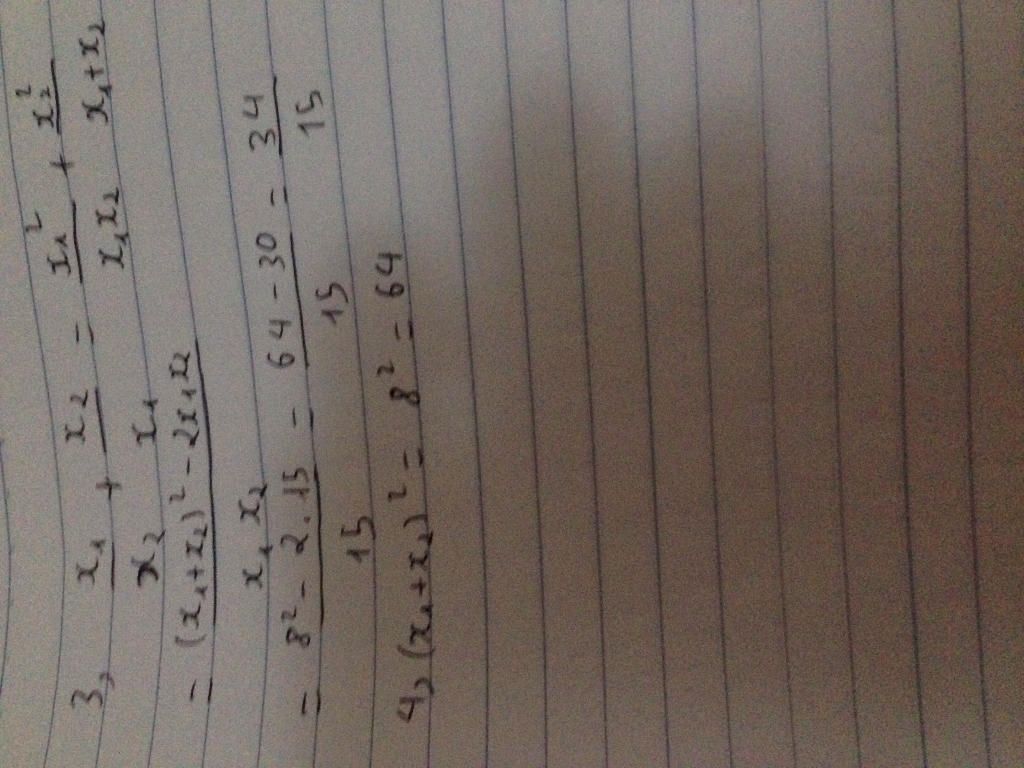 3, x₁/x₂ + x₂/x₁ = x₁²/x₁x₂ + x₂²/x₁+x₂
= (x₁+x₂)² - 2x₁x₂/x₁x₂
= 8² - 2.15/15 = 64 - 30/15 = 34/15
4, (x₁+x₂)² = 8² = 64